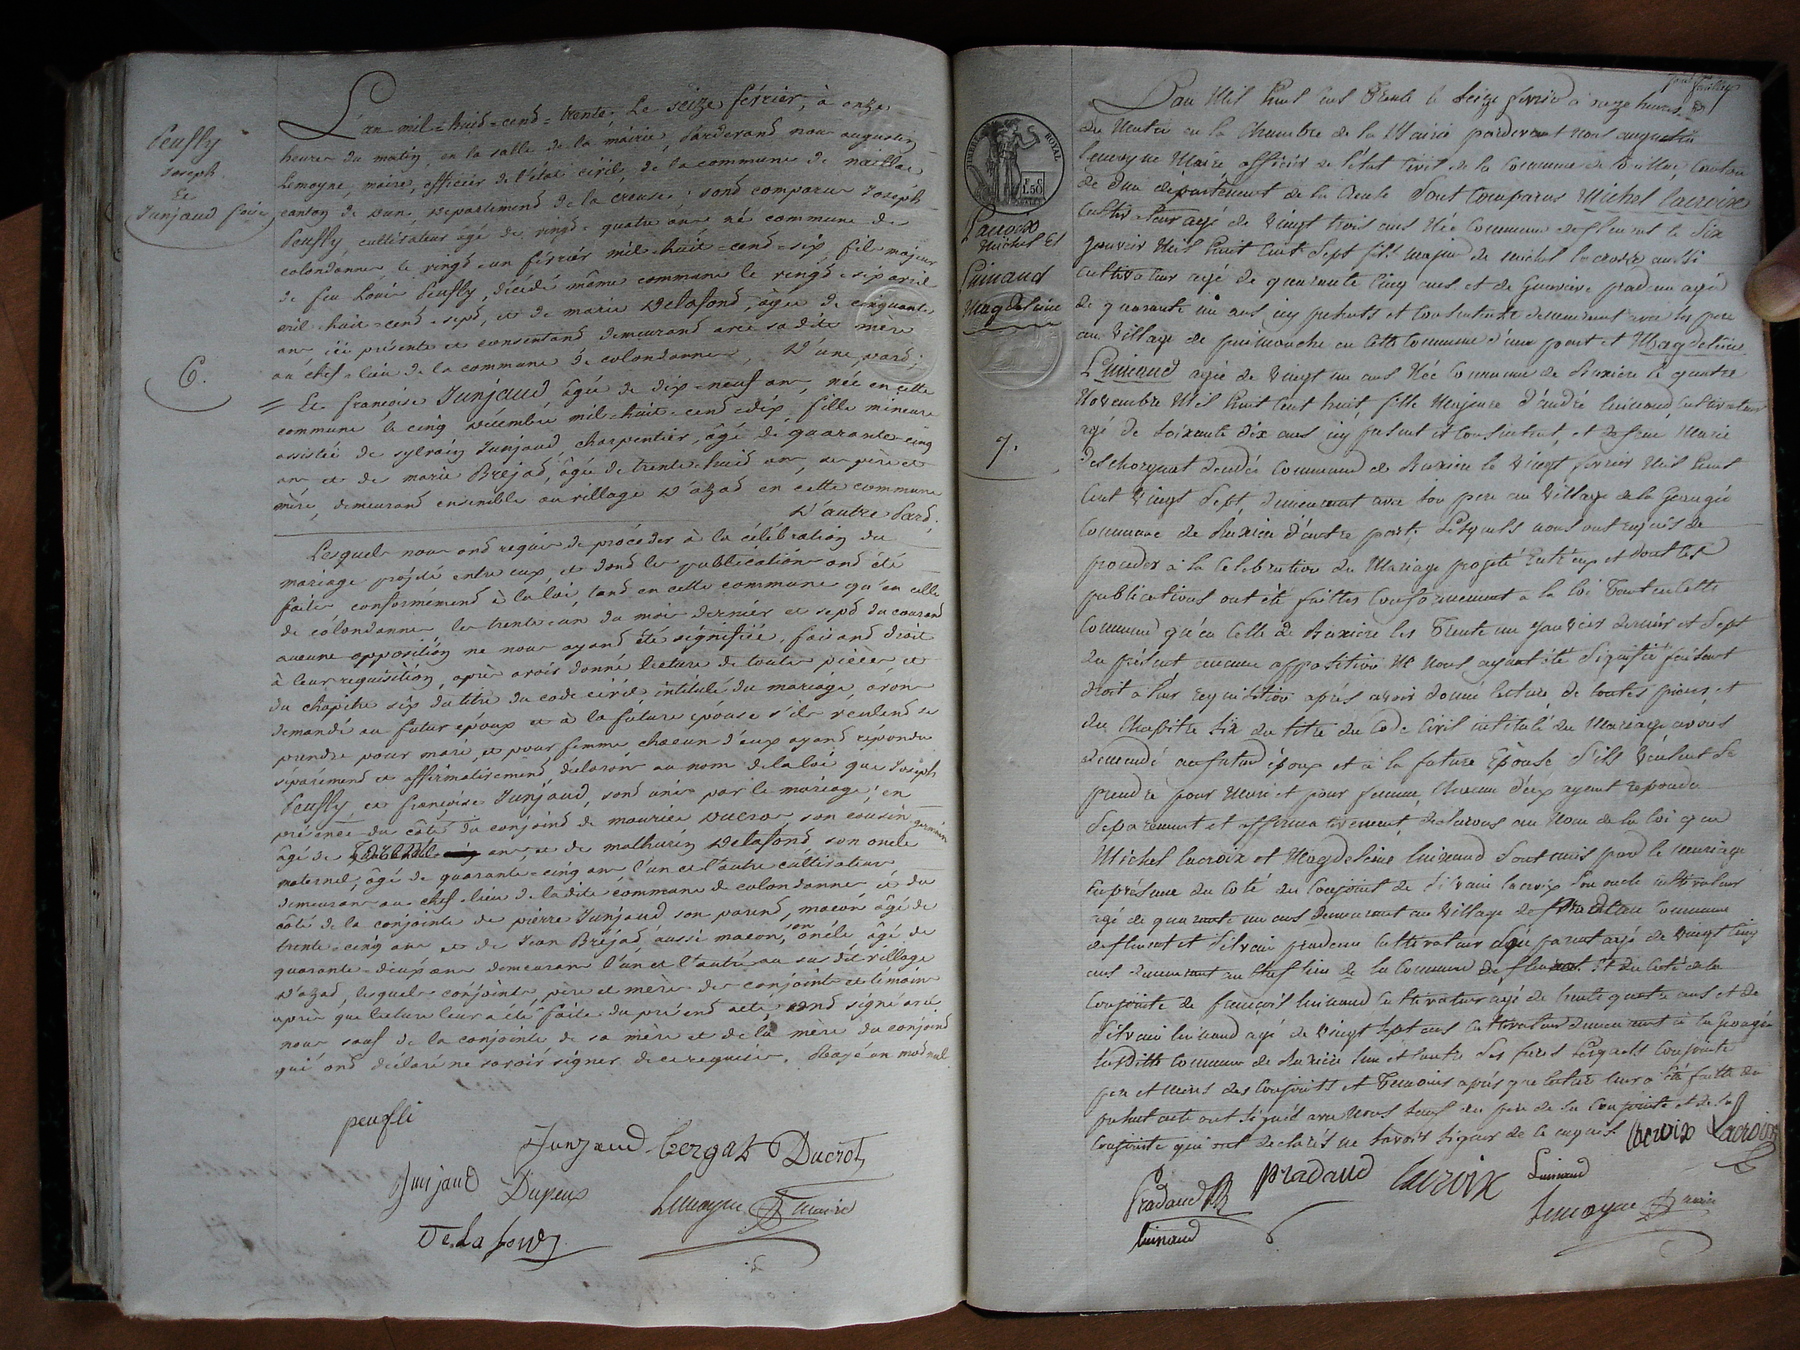 Peufly
Joseph
Et
Junjaud
6.
L'an mil-huit-cent-trente, le seize février, à onze
heures du matin, en la salle de la mairie, pardevant nous augustin
Lemoyne, maire, officier de l'état civil, de la commune de naillac
canton de dun, département de la creuse; sont comparus Joseph
Peufly cultivateur âgé de vingt-quatre ans né commune de
colondannes, le vingt-un février mil-huit-cent-six, fils majeur
de feu Louis Peufly, décédé même commune le vingt-six avril
mil-huit-cent-sept, et de marie Delafond, âgée de cinquante
ans, ici présente et consentant demeurant avec sa dite mère
au chef-lieu de la commune de colondannes, D'une part;
= Et françoise Junjaud, âgée de dix-neuf ans, née en cette
commune le cinq décembre mil-huit-cent-dix, fille mineure
assistée de sylvain Junjaud charpentier, âgé de quarante-cinq
ans et de marie Bréjad, âgée de trente-huit ans, ses père et
mère, demeurant ensemble au village D'azad en cette commune
D'autre Part.
Lesquels nous ont requis de procéder à la célébration du
mariage projeté entre eux, et dont les publications ont été
faites, conformément à la loi, tant en cette commune qu'en celle
de colondannes les trente-un du mois dernier et sept du courant
aucune opposition ne nous ayant été signifiée, faisant droit
à leur requisition, après avoir donné lecture de toutes pièces et
du chapitre six du titre du code civil intitulé du mariage, avons
demandé au futur époux et à la future épouse s'ils veulent se
prendre pour mari et pour femme chacun d'eux ayant repondu
séparément et affirmativement, déclarons au nom de la loi que Joseph
Peufly et françoise Junjaud, sont unis par le mariage; en
présence du côté du conjoint de maurice Ducros son cousin germain
âgé de ans, et de mathurin Delafond son oncle
maternel, âgé de quarante-cinq ans l'un et l'autre cultivateurs
demeurans au chef-lieu de ladite commune de colondannes et du
côté de la conjointe de pierre Junjaud son parent, maçon âgé de
trente-cinq ans et de Jean Bréjad, aussi maçon, son oncle âgé de
quarante-deux ans demeurans l'un et l'autre au sus dit village
D'azad, lesquels conjoints, père et mères des conjoints et témoins
après que lecture leur a été faite du présent acte, ont signé avec
nous sauf de la conjointe de sa mère et de la mère du conjoint
qui ont déclaré ne savoir signer, de ce requis. Rayé un mot nul
peufli
Junjaud Ducrot
Junjaud Dupeux Lemoyne maire
DeLafond
TIMBRE ROYAL
1F.50
Lacroix
Michel Et
Luinaud
Magdeleine
7.
L'an Mil huit cent Trente le Seize fevrier à onze heures
du Matin en la Chambre de la Mairie pardevant Nous augustin
Lemoyne Maire officier de l'état Civil de la Commune de Naillac Canton
de Dun département de la Creuse Sont Comparus Michel Lacroix
Cultivateur agé de vingt trois ans Née Commune de fleurat le Six
Janvier Mil huit Cent Sept fils majeur de michel lacroix aussi
cultivateur agé de quarante Cinq ans et de Genevieve pradeau agée
de quarante un ans icy presents et Consentants demeurant avec les père
au Village de puimouche en Cette Commune d'une part et Magdeleine
Luinaud agée de Vingt un ans Née Commune de le quatre
Novembre Mil huit Cent huit, fille Majeure d'andré luinaud, cultivateur
agé de Soixante dix ans icy present et Consentent, et de feue Marie
décédée Commune de le Vingt fevrier Mil huit
Cent Vingt Sept, demeurant avec Son pere au Village de la
Commune de d'autre part. Lesquels nous ont requis de
proceder a la Celebration du Mariage projeté Entre eux et dont les
publications ont été faittes Conformement a la loi Tant en Cette
Commune qu'en Celle de les Trente un Janvier dernier et Sept
du présent aucune opposition Ne Nous ayant été Signifié faisant
droit a leur requisition après avoir donné lecture de toutes pieces et
du Chapitre Six du titre du Code Civil intitulé du Mariage avons
demandé au futur époux et à la future Epouse S'ils Veulent Se
prendre pour Mari et pour femme Chacun d'eux ayant repondu
Separement et affirmativement, declarons au Nom de la loi que
Michel lacroix et Magdeleine luinaud Sont unis par le mariage
En présence du Coté du Conjoint de Silvain lacroix Son oncle cultivateur
agé de quarante un ans demeurant au Village de Commune
de fleurat et Silvain pradeau Cultivateur parent agé de Vingt Cinq
ans demeurant au Chef lieu de la Commune de fleurat. Et du Coté de la
Conjointe de françois luinaud Cultivateur agé de trente quatre ans et de
Silvain luinaud agé de Vingt Sept ans Cultivateur demeurant à la
Susditte Commune de l'un et l'autre Ses freres Lesquels Conjoints
pere et meres des Conjoints et Temoins après que lecture leur a été faitte du
present acte ont Signé avec Nous Sauf du pere de la Conjointe et de la
Conjointe qui ont declarés ne Savoir Signer de Ce enquis. Lacroix Lacroix
Pradaud pradaud lacroix Luinaud
luinaud Lemoyne maire